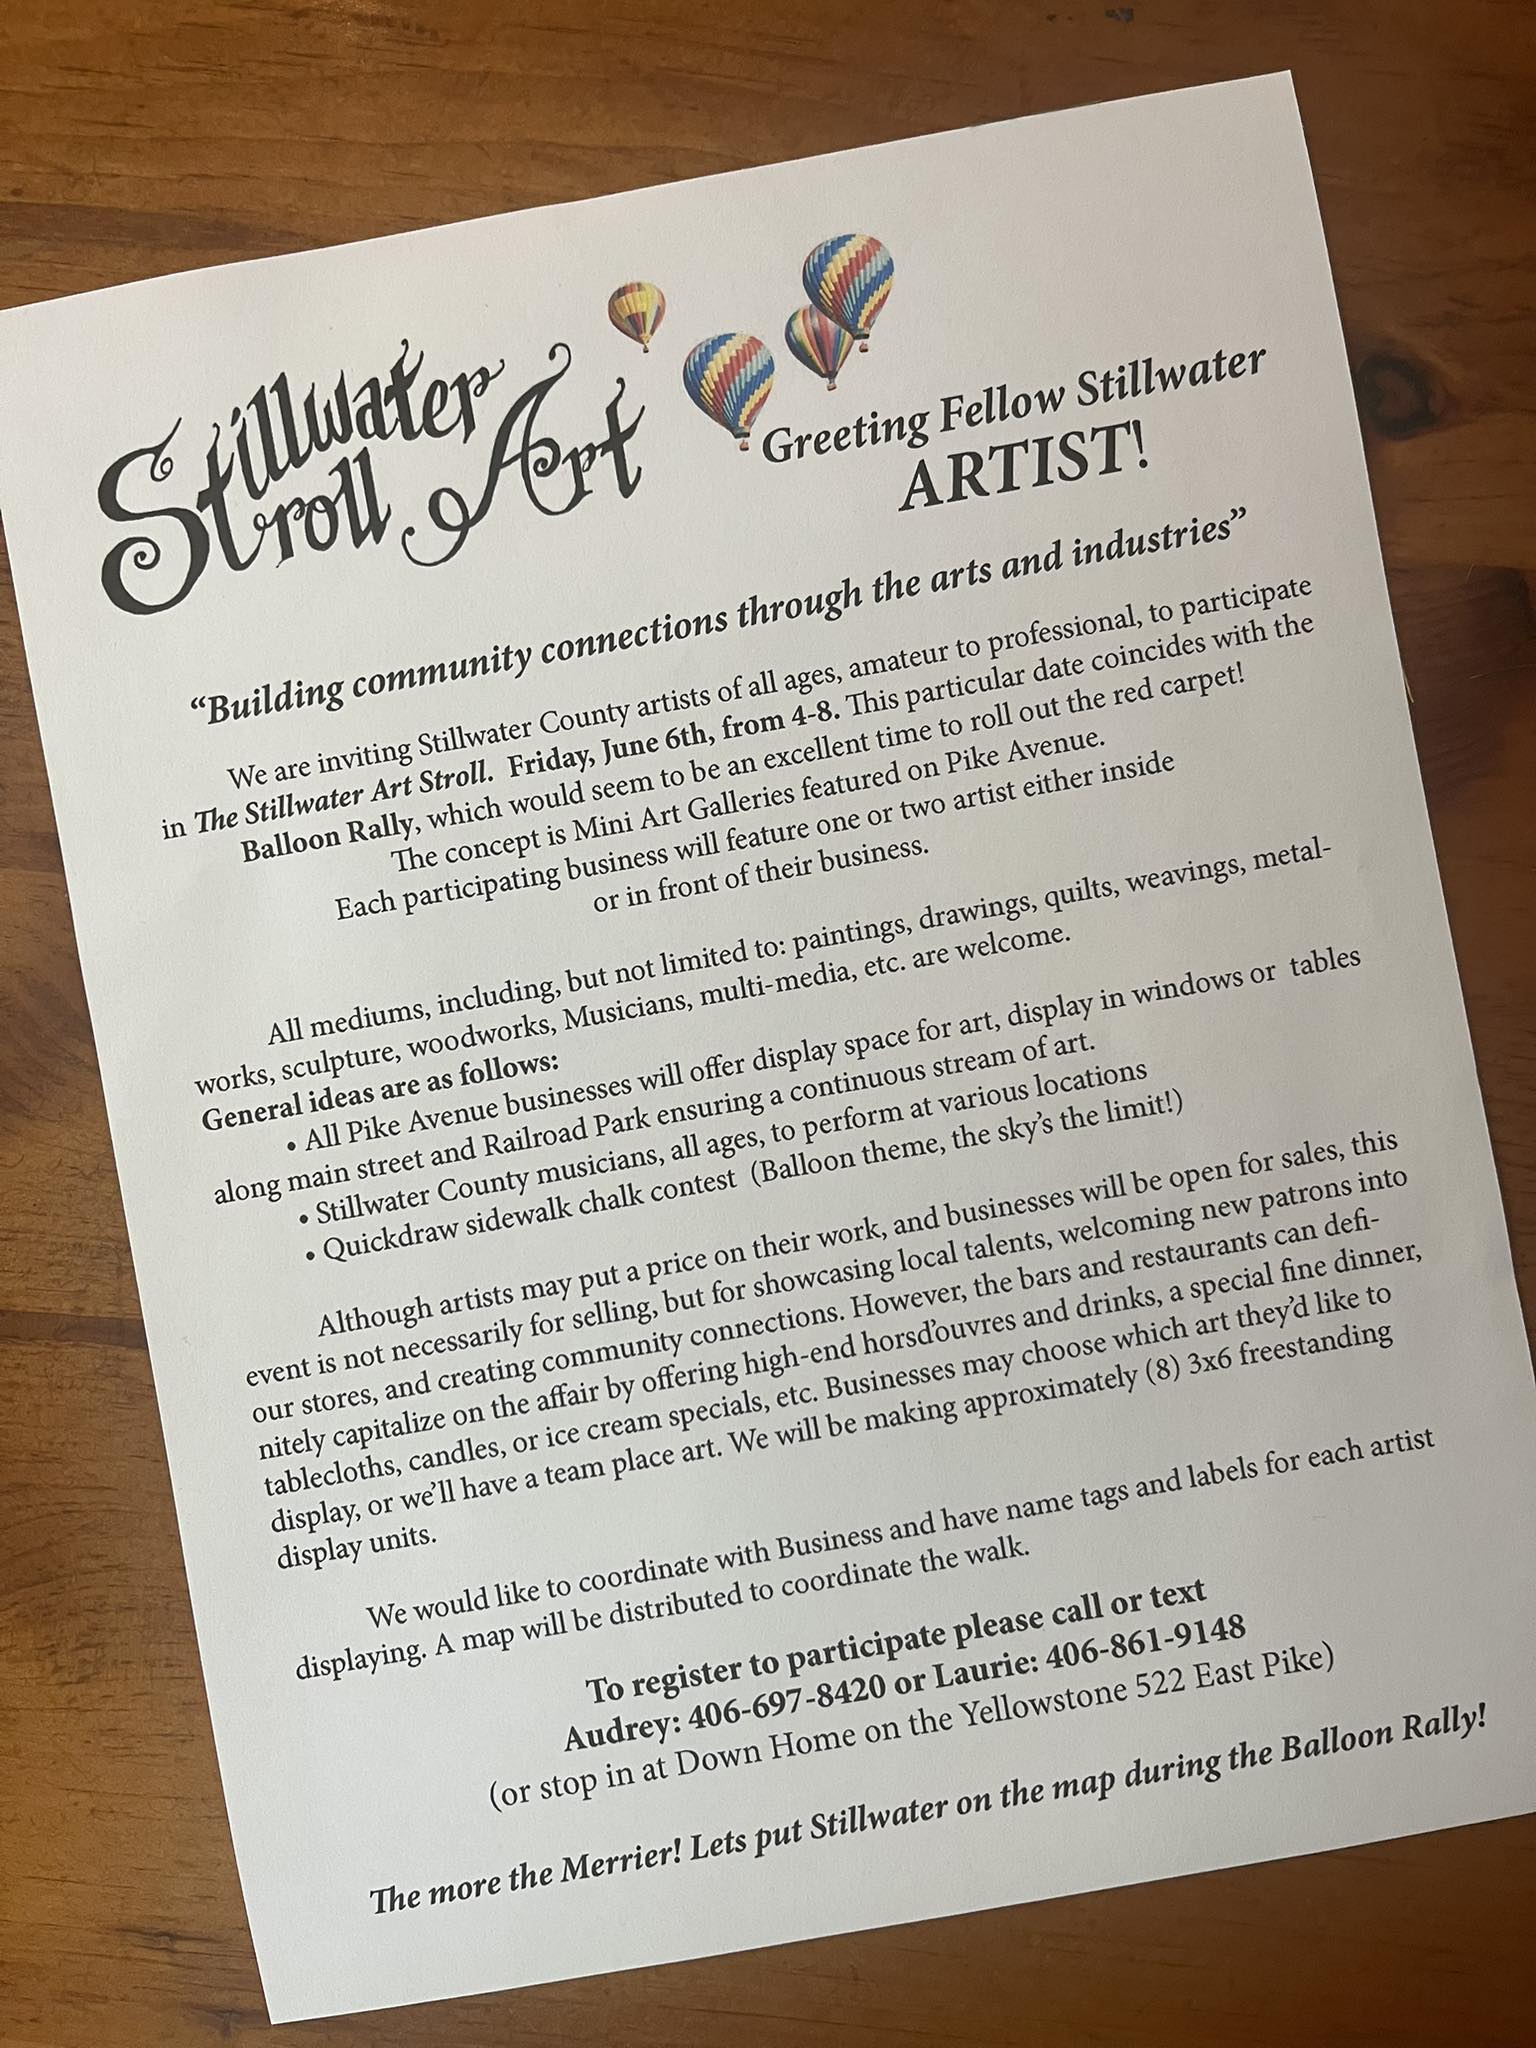 Stillwater
Stroll Art
Greeting Fellow Stillwater
ARTIST!
“Building community connections through the arts and industries”
We are inviting Stillwater County artists of all ages, amateur to professional, to participate
in The Stillwater Art Stroll. Friday, June 6th, from 4-8. This particular date coincides with the
Balloon Rally, which would seem to be an excellent time to roll out the red carpet!
The concept is Mini Art Galleries featured on Pike Avenue.
Each participating business will feature one or two artist either inside
or in front of their business.
All mediums, including, but not limited to: paintings, drawings, quilts, weavings, metal-
works, sculpture, woodworks, Musicians, multi-media, etc. are welcome.
General ideas are as follows:
• All Pike Avenue businesses will offer display space for art, display in windows or tables
along main street and Railroad Park ensuring a continuous stream of art.
• Stillwater County musicians, all ages, to perform at various locations
• Quickdraw sidewalk chalk contest (Balloon theme, the sky’s the limit!)
Although artists may put a price on their work, and businesses will be open for sales, this
event is not necessarily for selling, but for showcasing local talents, welcoming new patrons into
our stores, and creating community connections. However, the bars and restaurants can defi-
nitely capitalize on the affair by offering high-end horsd’ouvres and drinks, a special fine dinner,
tablecloths, candles, or ice cream specials, etc. Businesses may choose which art they’d like to
display, or we’ll have a team place art. We will be making approximately (8) 3x6 freestanding
display units.
We would like to coordinate with Business and have name tags and labels for each artist
displaying. A map will be distributed to coordinate the walk.
To register to participate please call or text
Audrey: 406-697-8420 or Laurie: 406-861-9148
(or stop in at Down Home on the Yellowstone 522 East Pike)
The more the Merrier! Lets put Stillwater on the map during the Balloon Rally!